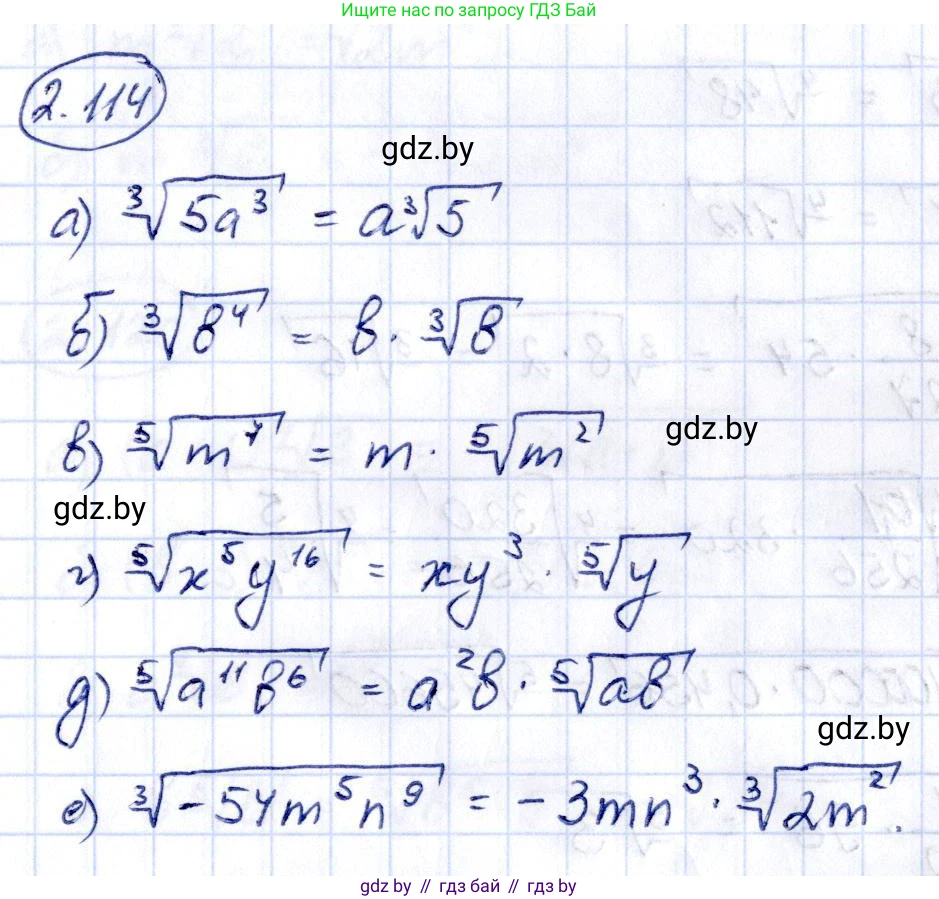 Ищите нас по запросу ГДЗ Бай
2.114
gdz.by
а) ∛(5a³) = a∛5
б) ∛(b⁴) = b · ∛b
в) ⁵√(m⁷) = m · ⁵√(m²)
gdz.by
gdz.by
г) ⁵√(x⁵y¹⁶) = xy³ · ⁵√y
д) ⁵√(a¹¹b⁶) = a²b · ⁵√(ab)
gdz.by
е) ∛(-54m⁵n⁹) = -3mn³ · ∛(2m²).
gdz by // гдз бай // гдз by